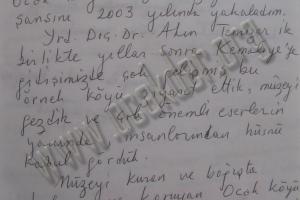 Ocak
şansını 2003 yılında yakaladım.
Yrd. Doç. Dr. Ahın ile
birlikte yıllar sonra Kemaliye'ye
gidişimizde çok gelişmiş bu
örnek köyü ziyaret ettik, müzeyi
gezdik ve çok önemli eserlerin
yanında insanlarından hüsnü
kabul gördük.
Müzeyi kuran ve bağışta
ve koruyan Ocak köyü